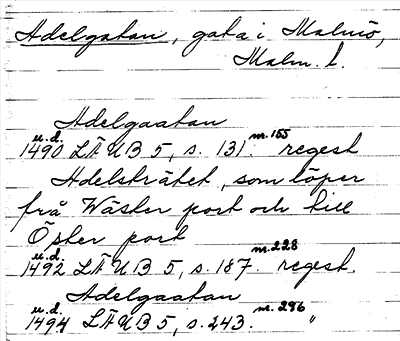 Adelgatan, gata i Malmö,
Malm. l.
Adelgaatan
u.d. 1490 LÄUB 5, s. 131. nr. 155 regest
Adelsträtet, som löper
frå Wäster port och till
Öster port
u.d. 1492 LÄUB 5, s. 187. nr. 228 regest.
Adelgaatan
u.d. 1494 LÄUB 5, s. 243. nr. 296 "